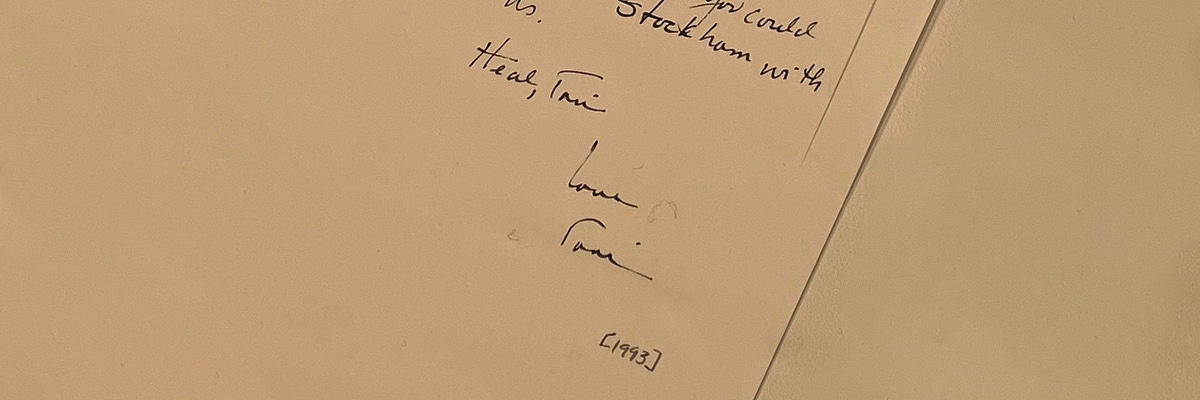 you could
Stockham with
us.
Heal, Toni
Love
Toni
[1993]